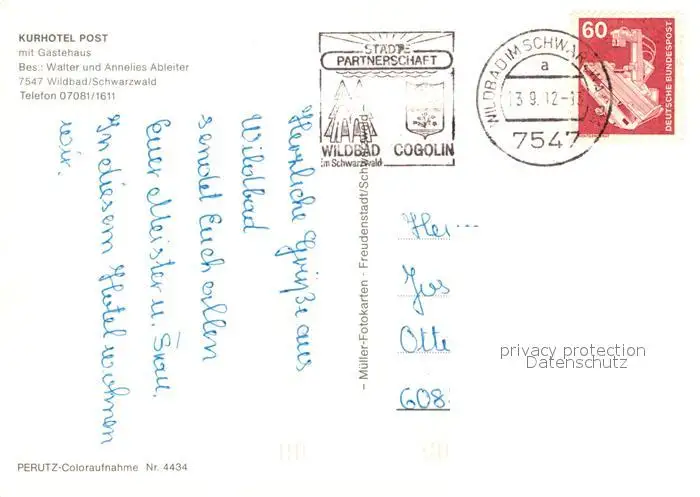 KURHOTEL POST
mit Gästehaus
Bes.: Walter und Annelies Ableiter
7547 Wildbad/Schwarzwald
Telefon 07081/1611
STÄDTE
PARTNERSCHAFT
WILDBAD
im Schwarzwald
COGOLIN
WILDBAD IM SCHWARZWALD
a
13.9.
7547
60
DEUTSCHE BUNDESPOST
Herzliche Grüße aus
Wildbad
sendet Euch allen
Euer Meister u. Frau.
In diesem Hotel wohnen
wir.
– Müller-Fotokarten - Freudenstadt/Sch
Her
Jos
Otte
608
privacy protection
Datenschutz
PERUTZ-Coloraufnahme Nr. 4434